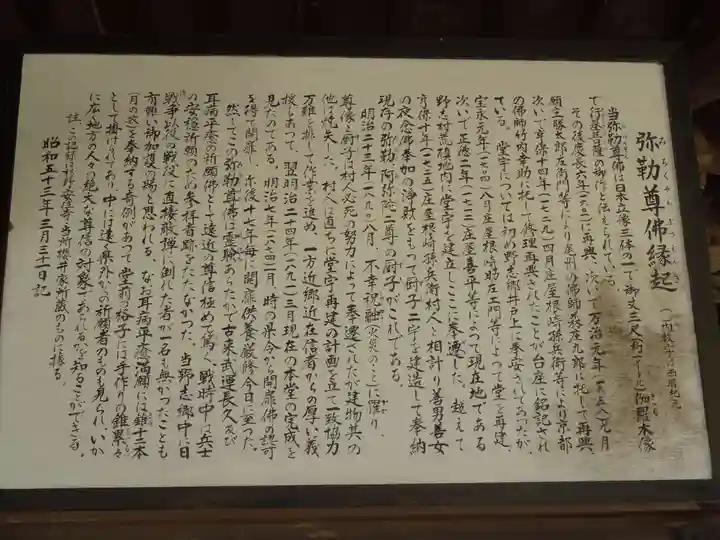 弥勒尊佛縁起
みろくそんぶつえんぎ
当弥勒尊佛は日本立像三体の一で御丈三尺(約一メートル)伽羅木像
て行基日隆の御作と伝えられている。
その後慶長六年(一六〇一)に再興、次いで万治元年(一六五八)九月
願主勝太郎左衛門等により星州の佛師茂座九郎に托して再興、
次いで享保十四年(一七二九)四月庄屋根崎孫兵衛等により京都
の佛師竹内幸助に托して修理再興されたことが台座に銘記され
ている。堂宇については初め野志郷井戸上に奉安されてあったが、
宝永元年(一七〇四)八月庄屋根崎助左エ門等によって堂を再建、
次いで正徳二年(一七一二)庄屋喜平等によって現在地である
野志村高根地内に堂宇を建立しここに奉遷した。越えて
享保十年(一七二五)庄屋根崎孫兵衛村人と相計り善男善女
の夜念佛奉加の浄財をもって厨子二宇を建造して奉納
現存の弥勒、阿弥陀二尊の厨子がこれである。
明治二十三年(一八九〇)八月、不幸祝融(火災のこと)に罹り、
尊像と厨子は村人必死の努力によって奉遷されたが建物其の
他は焼失した。村人は直ちに堂宇再建の計画を立て一致協力
万難を排して作業を進め、一方近郷近在信者からの厚い義
捐もあって、翌明治二十四年(一八九一)三月現在の本堂の完成を
見たのである。明治七年(一八七四)二月、時の県令から開扉佛の認可
を得て開扉、尓後十七年毎に開扉供養厳修今日に至った。
然してこの弥勒尊佛は霊験あらたかで古来武運長久及び
耳病平癒の祈願佛として遠近の尊信極めて篤く、戦時中は兵士
の安穏祈願のため参拝者跡をたたなかった。当野志郷中に日
清戦争以後の戦役に直接敵弾に倒れた者が一名も無かったことも
有難い御加護の賜と思われる。なお耳病平癒満願には錐十二本
(月の数)を奉納する奇例があって堂前の格子には手作りの錐累々
として掛けられてあり、中には遠く県外からの祈願者のものも見られ、いか
に広い地方の人々の絶大な尊信の対象であられるかを知ることができる。
註 この記録は
当所櫻井家所蔵のものに拠る。
昭和五十三年三月三十一日記